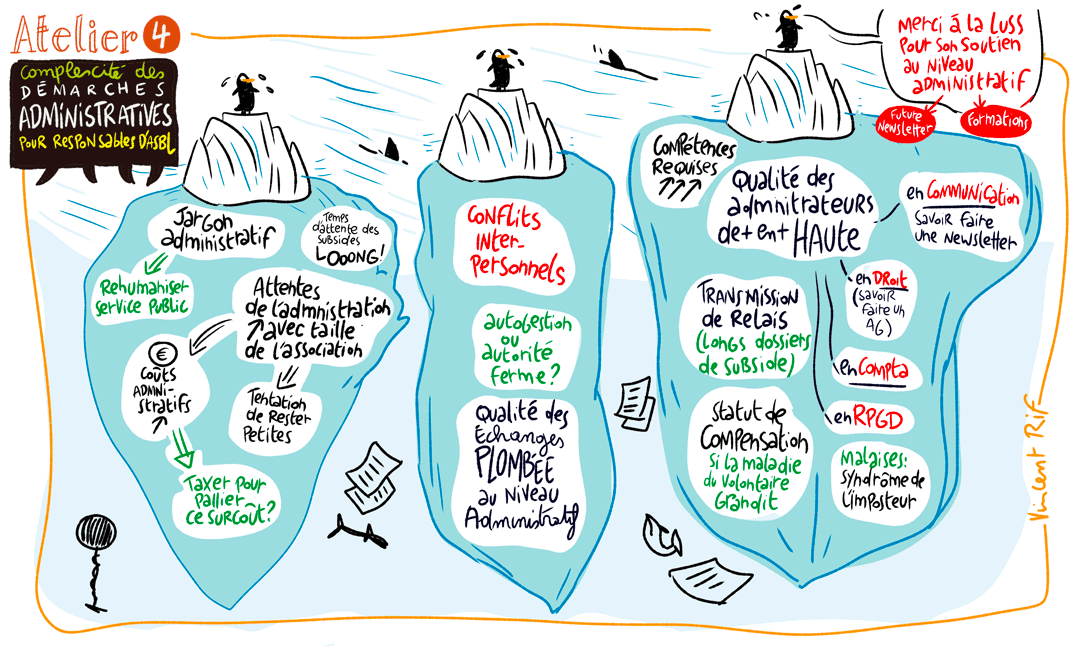 Atelier 4
Complexité des
DÉMARCHES
ADMINISTRATIVES
POUR RESPONSABLES D'ASBL
Jargon
administratif
Rehumaniser
service public
Temps
d'attente des
subsides
LOOONG!
Attentes
de l'admnistration
↗ avec taille
de l'association
€
Coûts
ADMNI-
stratifs
↗
Tentation
de Rester
Petites
Taxer pour
pallier
ce surcoût?
CONFLITS
INTER-
Personnels
autogestion
ou
autorité
ferme?
Qualité des
Echanges
PLOMBÉE
au Niveau
Administratif
Merci à la LUSS
Pour son soutien
au niveau
administratif
Future
Newsletter
Formations
Compétences
Requises
↗↗↗
Qualité des
admnitrateurs
de + en + HAUTE
en COMMUNICATION
Savoir faire
une newsletter
en DRoit
(savoir
faire un
AG)
en Compta
en RPGD
TRANSMISSION
de Relais
(Longs dossiers
de subside)
Statut de
COMPENSATION
Si la maladie
du volontaire
Grandit
Malaises:
syndrâme de
L'imposteur
Vincent Rif